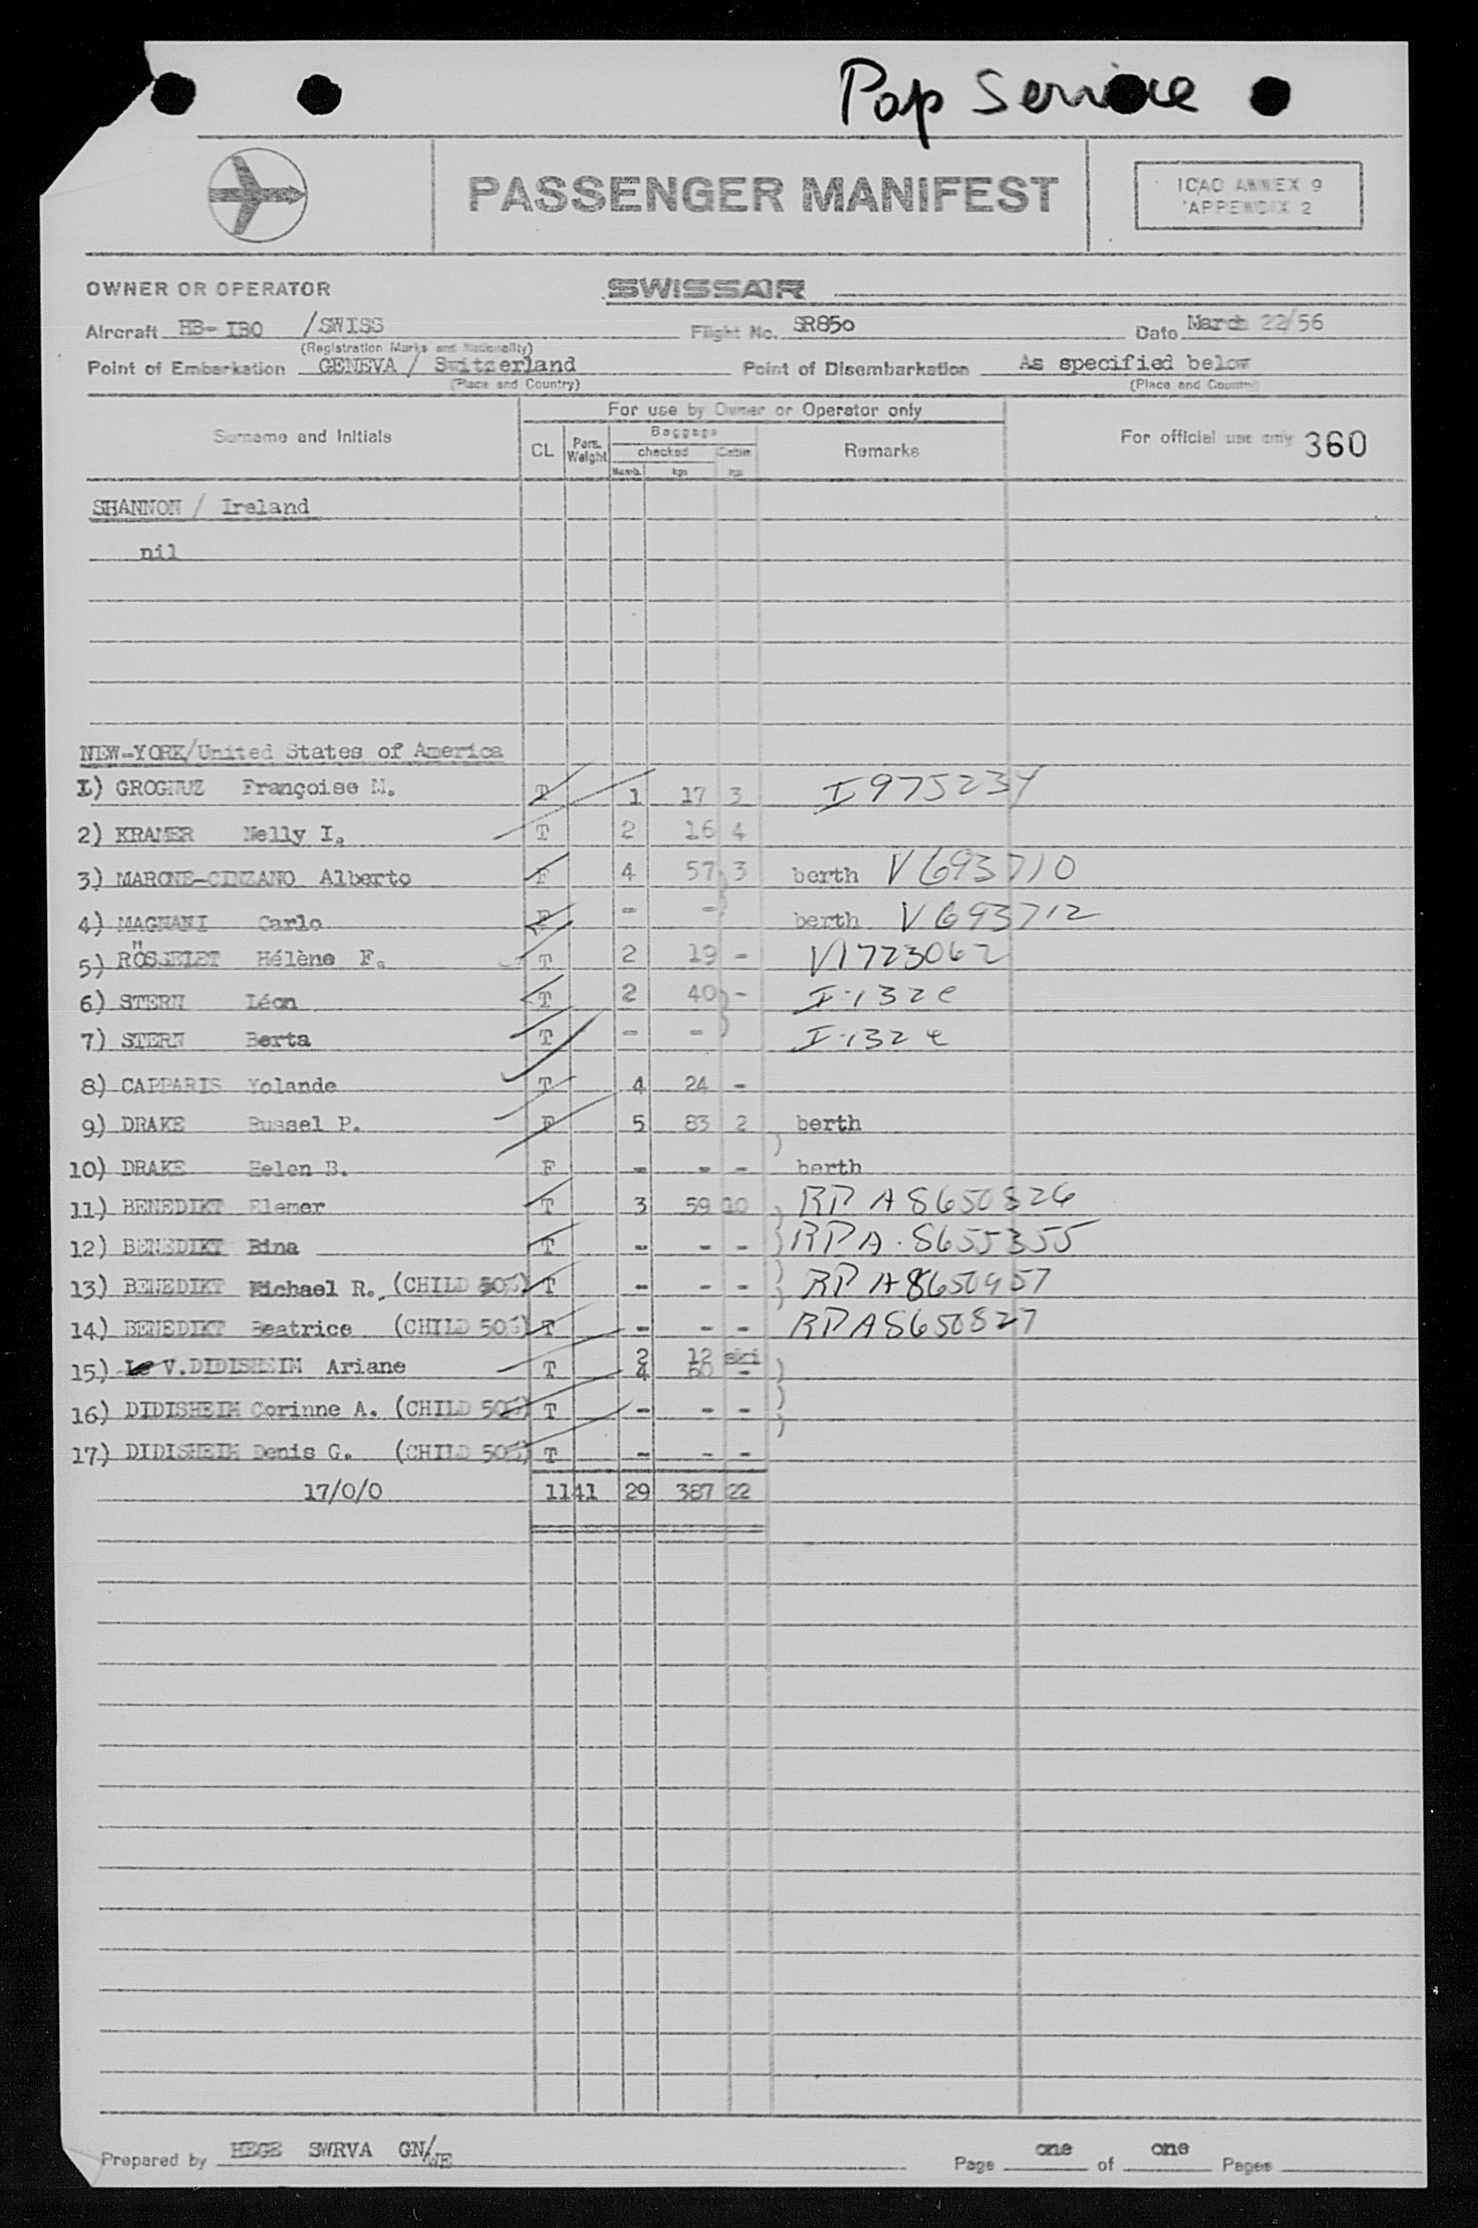 Pap Service
PASSENGER MANIFEST
ICAO ANNEX 9
APPENDIX 2
OWNER OR OPERATOR SWISSAIR
Aircraft HB-IBO /SWISS Flight No. SR850 Date March 22/56
(Registration Marks and Nationality)
Point of Embarkation GENEVA / Switzerland Point of Disembarkation As specified below
(Place and Country) (Place and Country)
For use by Owner or Operator only
Surname and Initials CL Pers. Weight Baggage checked Numb. kgs Cabin kgs Remarks For official use only 360
SHANNON / Ireland
nil
NEW-YORK/United States of America
1) GROGNUZ Françoise M. T 1 17 3 I975234
2) KRAMER Nelly I. T 2 16 4
3) MARONE-CINZANO Alberto F 4 57 3 berth V693710
4) MAGNANI Carlo F - - berth V693712
5) Hélène F. T 2 19 - V1723062
6) STERN Léon T 2 40 - I-132e
7) STERN Berta T - - I-132e
8) CAPPARIS Yolande T 4 24 -
9) DRAKE Russel P. F 5 83 2 berth
10) DRAKE Helen B. F - - - berth
11) BENEDIKT Elemer T 3 59 10 RP A8650826
12) BENEDIKT Bina T - - - RPA-8655355
13) BENEDIKT Michael R. (CHILD 50%) T - - - RP A8650957
14) BENEDIKT Beatrice (CHILD 50%) T - - - RPA8650827
15) V.DIDISHEIM Ariane T 2 12 ski
4 60 -
16) DIDISHEIM Corinne A. (CHILD 50%) T - - -
17) DIDISHEIM Denis G. (CHILD 50%) T - - -
17/0/0 1141 29 387 22
Prepared by HEGE SWRVA GN/WE Page one of one Pages